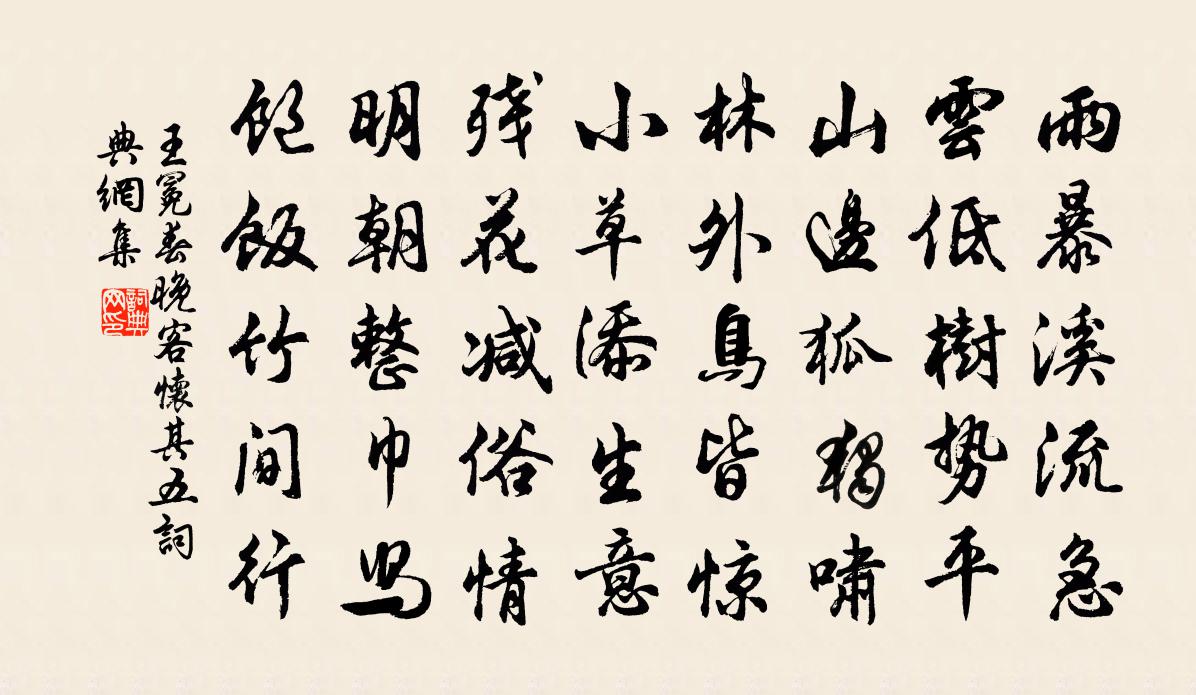 雨暴溪流急
雲低樹勢平
山邊狐獨嘯
林外鳥皆惊
小草添生意
残花减俗情
明朝整巾舄
飽飯竹間行
王冕春晚客懷其五詞
典網集
詞典
网印